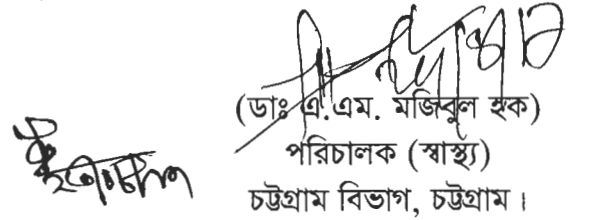 (ডাঃ এ.এম. মজিবুল হক)
পরিচালক (স্বাস্থ্য)
চট্টগ্রাম বিভাগ, চট্টগ্রাম।